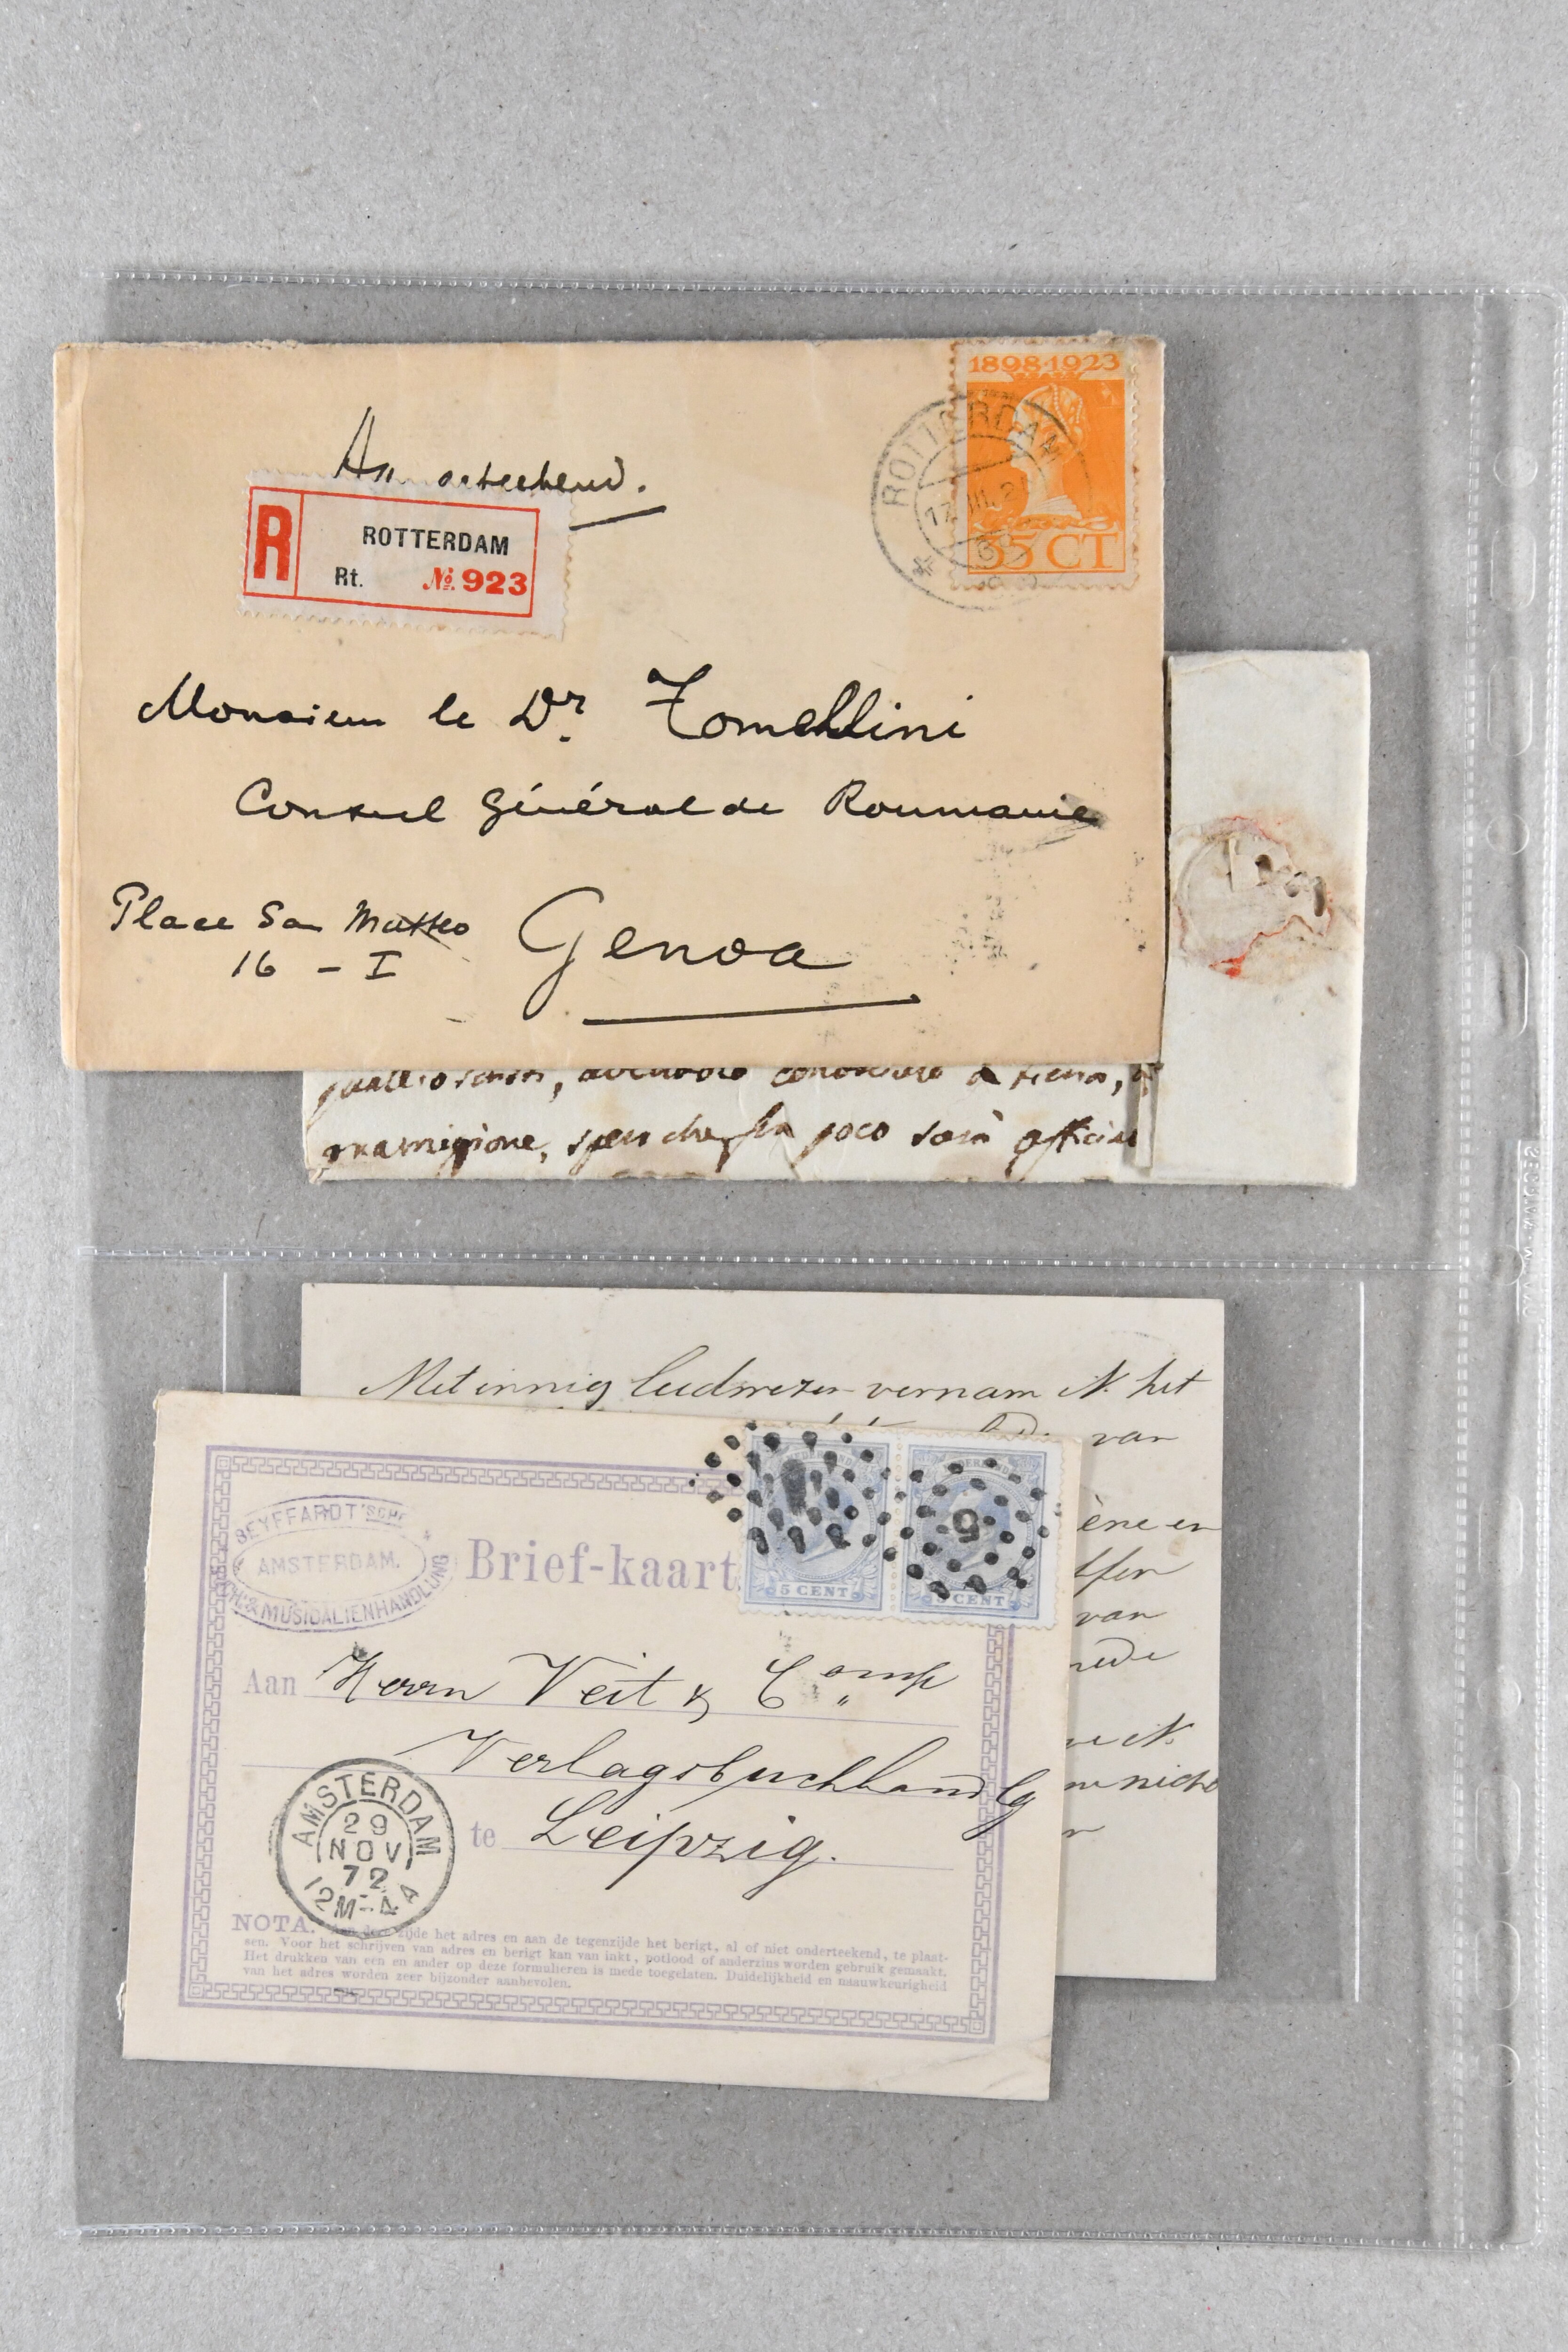 1898 1923
ROTTERDAM
35 CT
Aangeteekend.
R
ROTTERDAM
Rt. № 923
Monsieur le Dr. Tomellini
Consul Général de Roumanie
Place San Matteo
16 - I
Genoa
poco sarà
Met innig leedwezen vernam N. het
van
van
SEYFFARDT'SCHE
AMSTERDAM.
& MUSIKALIENHANDLUNG
Brief-kaart.
5 CENT
5 CENT
5
Aan Herrn Veit & Comp
Verlagsbuchhandlg
te Leipzig.
AMSTERDAM
29
NOV
72
12M-4A
NOTA. zijde het adres en aan de tegenzijde het berigt, al of niet onderteekend, te plaat-
sen. Voor het schrijven van adres en berigt kan van inkt, potlood of anderzins worden gebruik gemaakt.
Het drukken van een en ander op deze formulieren is mede toegelaten. Duidelijkheid en naauwkeurigheid
van het adres worden zeer bijzonder aanbevolen.